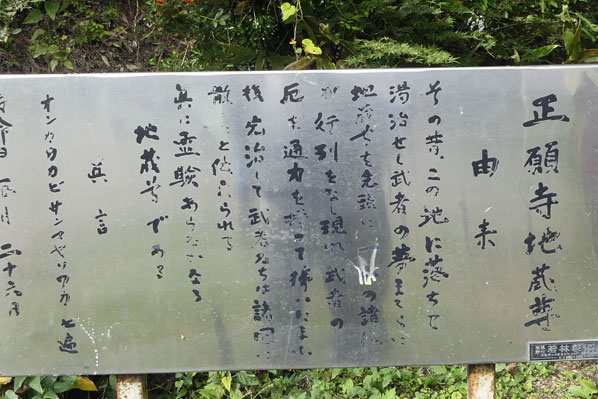 正願寺地蔵尊
由来
その昔、この地に落ちて
湯治せし武者の夢まくらに
地蔵尊を先頭に の諸
が行列をなし現れ武者の
厄を通力を持って掃いたまい
後完治して武者たちは諸国に
散 と伝えられる
真に霊験あらたかなる
地蔵尊である
真言
オンカカカビサンマヤソワカ 七遍
命日 毎月 二十六日
若林